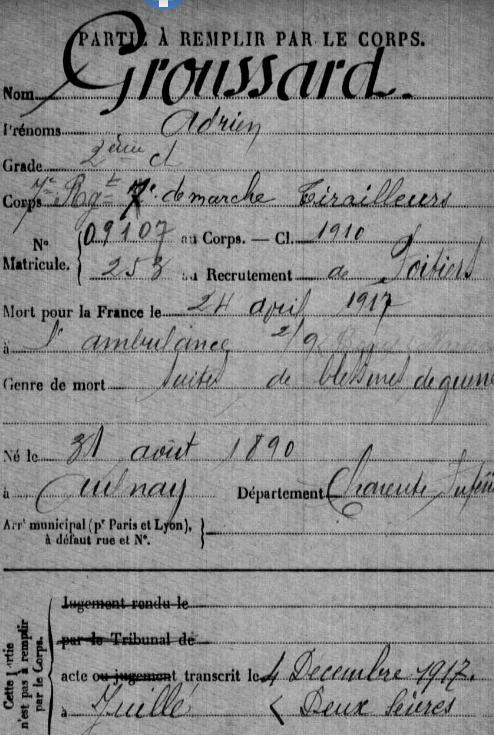 PARTIE À REMPLIR PAR LE CORPS.
Nom Groussard.
Prénoms Adrien
Grade 2ème cl
Corps 7e Rgt de marche Tirailleurs
N° Matricule. { 09107 au Corps. — Cl. 1910
253 au Recrutement de Poitiers
Mort pour la France le 24 avril 1917
à l'ambulance 2/9
Genre de mort Suites de blessures de guerre
Né le 31 août 1890
à Aulnay Département Charente Inférieure
Arrt municipal (pr Paris et Lyon), à défaut rue et N°. }
Cette partie n'est pas à remplir par le Corps.
Jugement rendu le
par le Tribunal de
acte ou jugement transcrit le 4 Decembre 1917.
à Juillé ( Deux Sèvres